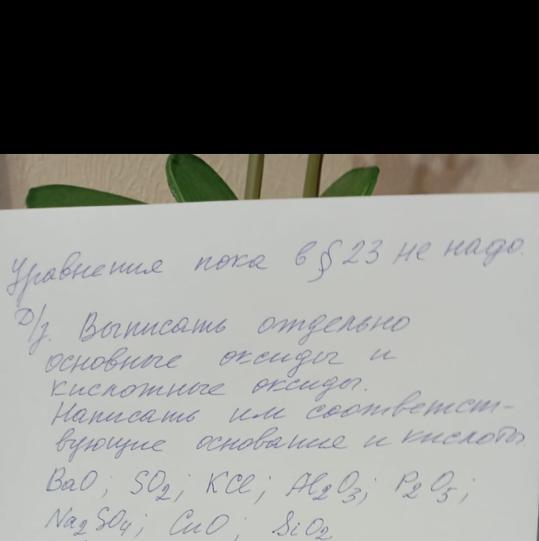 Уравнения пока в § 23 не надо.
Д/з. Выписать отдельно
основные оксиды и
кислотные оксиды.
Написать им соответст-
вующие основание и кислоты
BaO; SO₂; KCl; Al₂O₃; P₂O₅;
Na₂SO₄; CuO; SiO₂